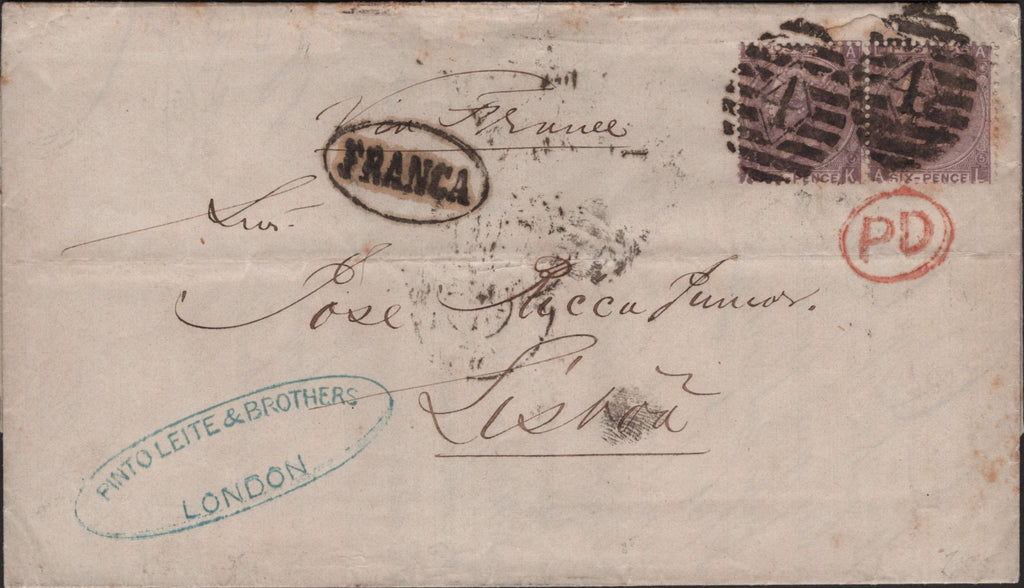 Via France
FRANCA
Snr.
José Rocca Junior.
Lisboa
PINTO LEITE & BROTHERS
LONDON
1
1
A
L
A
PENCE K
A SIX-PENCE L
PD